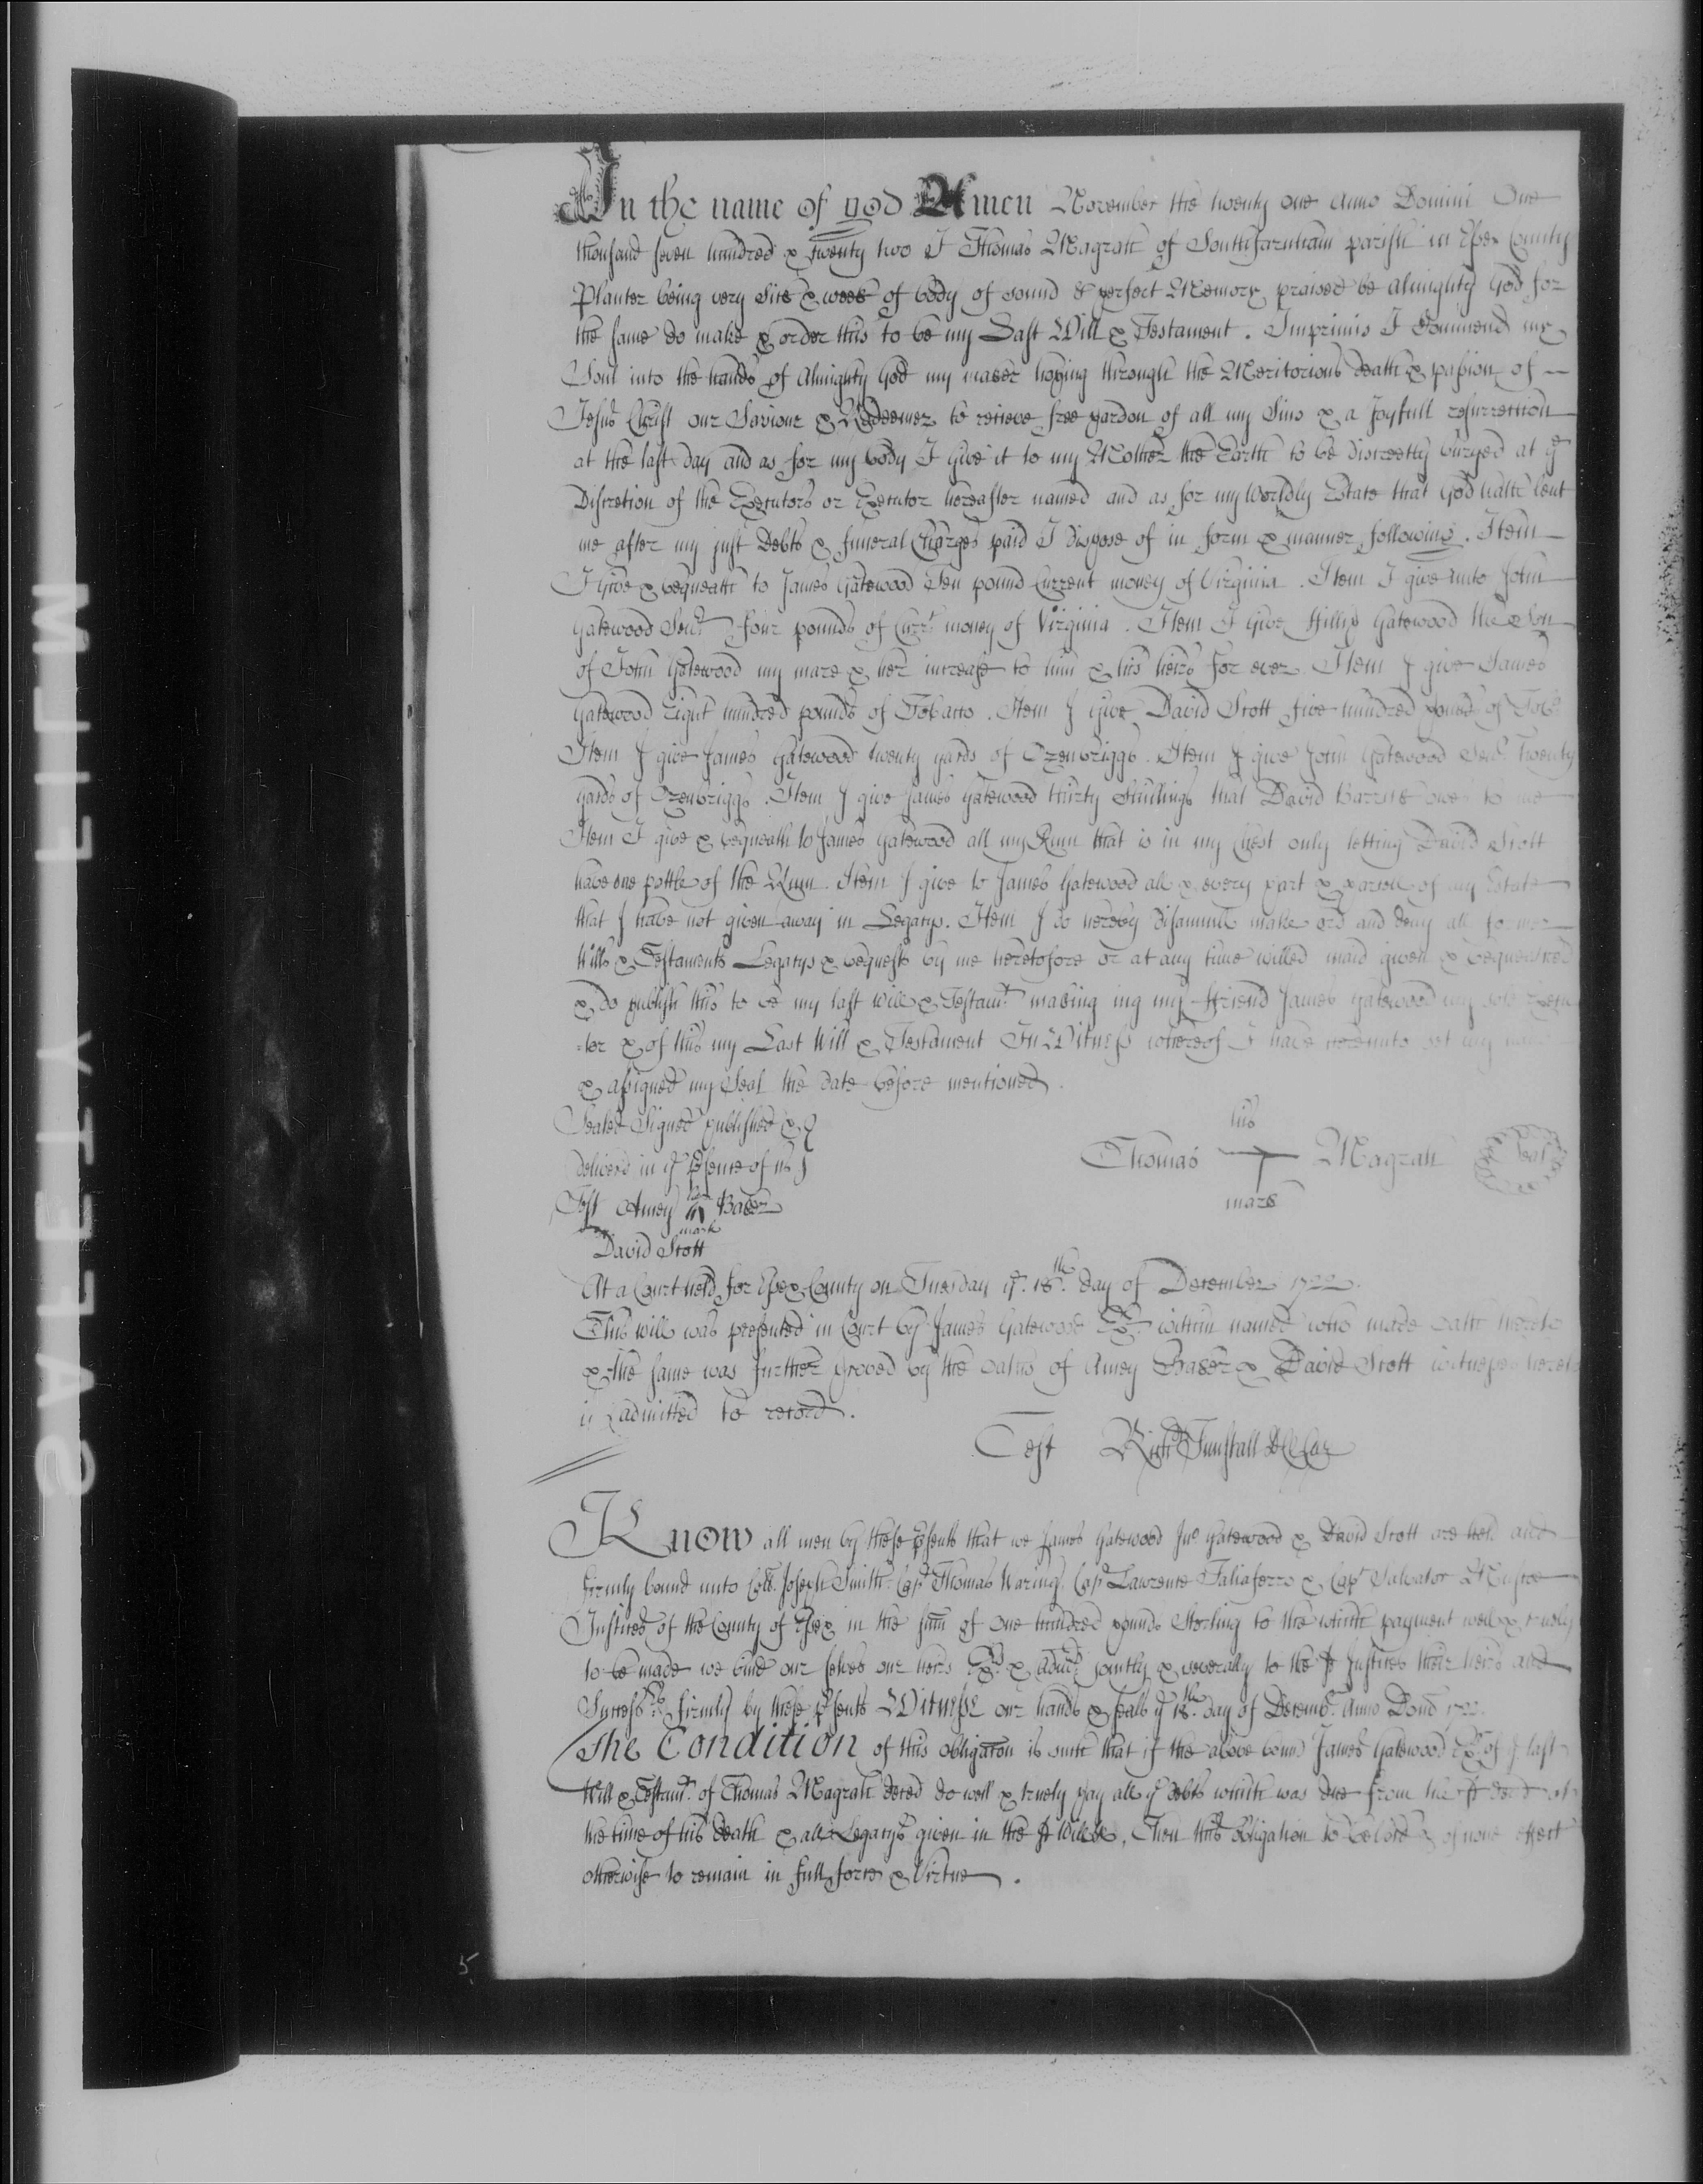 In the name of god Amen November the twenty one Anno Domini One
thousand seven hundred & twenty two I Thomas Magrah of Southfarnham parish in Essex County
Planter being very Sick & week of body of sound & perfect Memory praised be Almighty God for
the same do make & order this to be my Last Will & Testament. Imprimis I Commend my
Soul into the hands of Almighty God my maker hoping through the Meritorious death & passion of
Jesus Christ our Saviour & Redeemer to recieve free pardon of all my Sins & a Joyfull resurrection
at the last day and as for my body I Give it to my Mother the Earth to be discreetly buryed at ye
Discretion of the Executors or Executor hereafter named and as for my Worldly Estate that God hath lent
me after my just Debts & funeral Charges paid I dispose of in form & manner following. Item
I Give & bequeath to James Gatewood Ten pound Current money of Virginia. Item I give unto John
Gatewood Senr. four pounds of Currt. money of Virginia. Item I Give Phillip Gatewood the Son
of John Gatewood my mare & her increase to him & his heirs for ever. Item I give James
Gatewood Eight hundred pounds of Tobacco. Item I give David Scott five hundred pounds of Tobo.
Item I give James Gatewood twenty yards of Ozenbriggs. Item I give John Gatewood Senr. Twenty
yards of Ozenbriggs. Item I give James Gatewood thirty Shillings that David owes to me
Item I give & bequeath to James Gatewood all my Rum that is in my Chest only letting David Scott
have one pottle of the Rum. Item I give to James Gatewood all & every part & parcell of my Estate
that I have not given away in Legacys. Item I do hereby disannull make and deny all former
Wills & Testaments Legacys & bequests by me heretofore or at any time willed maid given & bequeathed
& do publish this to be my last Will & Testamt. making ing my ffriend James Gatewood my sole Execu
=tor & of this my Last Will & Testament In Witness whereof I have hereunto set my hand
& assigned my Seal the date before mentioned.
Sealed Signed published &
deliverd in ye psence of us
his
Thomas Magrah Seal
mark
Test Amey her Baker
mark
David Scott
At a Court held for Essex County on Tuesday ye. 18th. day of December 1722.
This will was presented in Court by James Gatewood Exr. within named who made oath thereto
& the same was further proved by the oaths of Amey Baker & David Scott witnesses hereto
is admitted to record.
Test Richd Tunstall D Cl Cur
Know all men by these psents that we James Gatewood Jno Gatewood & David Scott are held and
firmly bound unto Coll. Joseph Smith Capt Thomas Waring, Capt Lawrence Taliaferro & Capt Salvator Muscoe
Justices of the County of Essex in the sum of one hundred pounds Sterling to the which payment well & truely
to be made we bind our selves our heirs Exrs. & Admrs. jointly & severally to the sd Justices their heirs and
Successrs. firmly by these psents Witnesse our hands & seals ye 18th. day of Decembr. Anno Dom 1722.
The Condition of this obligacon is such that if the above bound James Gatewood Exr. of ye last
Will & Testamt. of Thomas Magrah deced do well & truely pay all ye debts which was due from the sd deced at
the time of his death & all Legacys given in the sd Will &c, Then this obligation to be void & of none effect
otherwise to remain in full force & Virtue.
5
SAFETY FILM